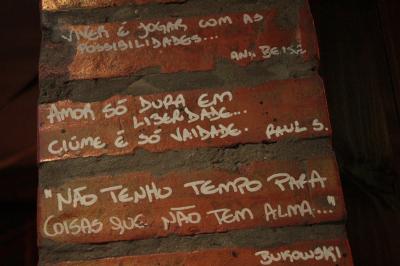 VIVER É JOGAR COM AS
POSSIBILIDADES...
AMOR SÓ DURA EM
LIBERDADE...
CIÚME É SÓ VAIDADE. RAUL S.
"NÃO TENHO TEMPO PARA
COISAS QUE NÃO TEM ALMA..."
BUKOWSKI